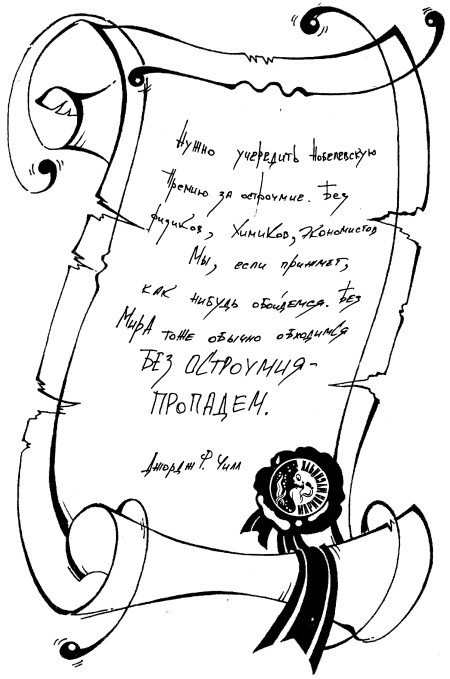 Нужно учередить Нобелевскую
Премию за остроумие. Без
физиков, химиков, экономистов
Мы, если прижмет,
как нибудь обойдемся. Без
Мира тоже обычно обходимся
БЕЗ ОСТРОУМИЯ-
ПРОПАДЕМ.
Джордж Ф. Уилл